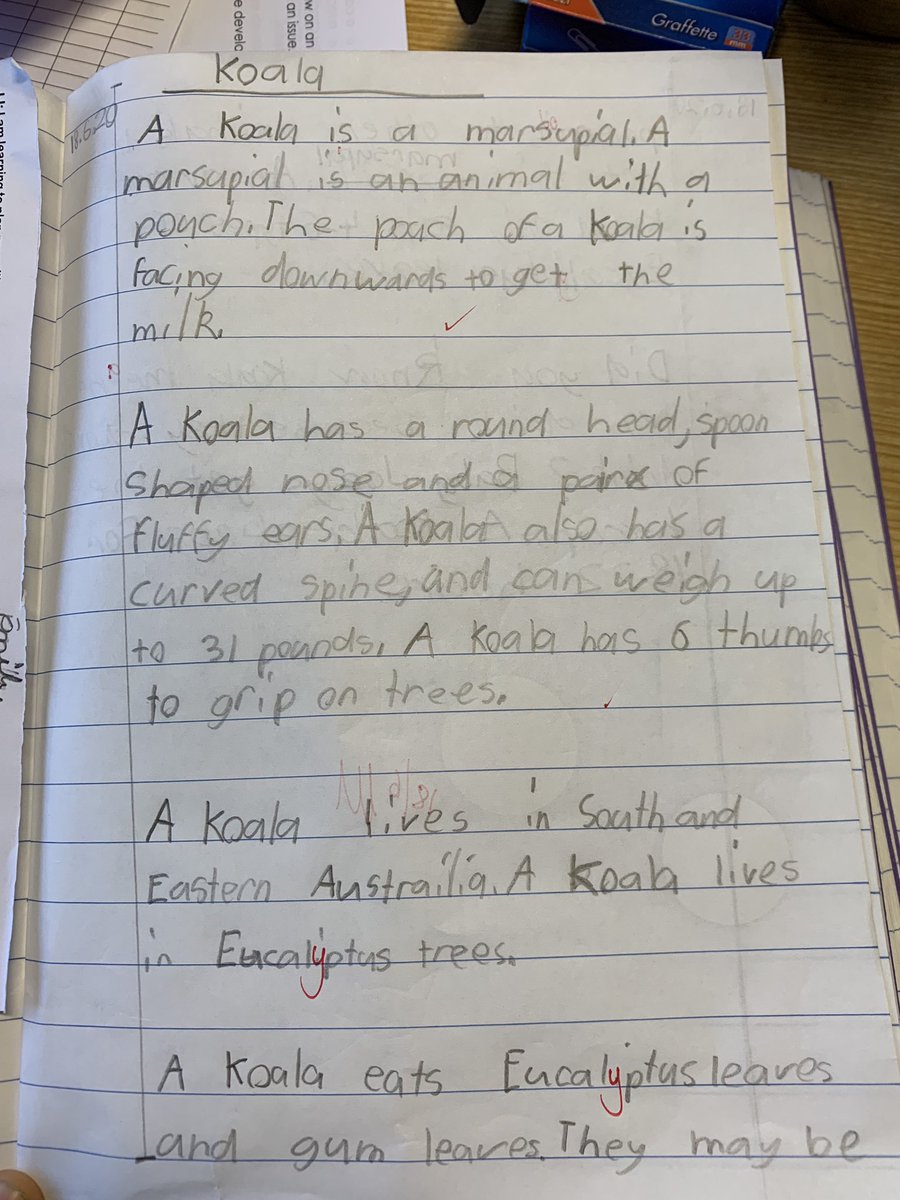 w on an
an issue.
e develo
Graffette 33
mm
Koala
18.6.20
A Koala is a marsupial. A
marsupial is an animal with a
pouch. The pouch of a Koala is
facing downwards to get the
milk.
A Koala has a round head, spoon
shaped nose and a pair of
fluffy ears. A Koala also has a
curved spine, and can weigh up
to 31 pounds. A Koala has 6 thumbs
to grip on trees.
A Koala lives in South and
Eastern Austrailia. A Koala lives
in Eucalyptus trees.
A Koala eats Eucalyptus leaves
and gum leaves. They may be